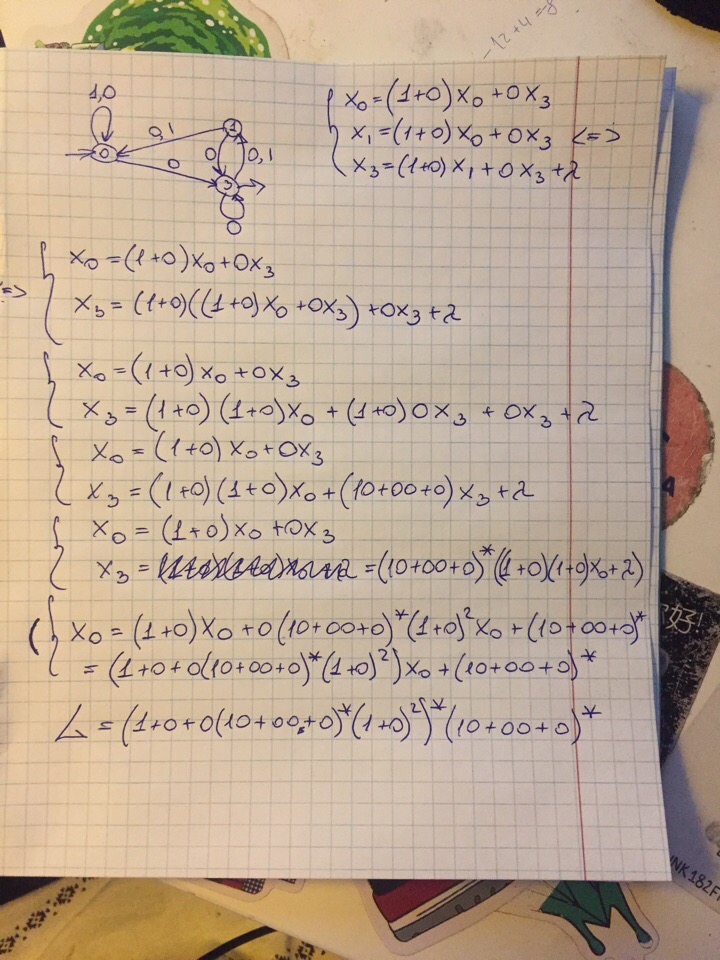 -12+4=-8
1,0
0,1
1
0
0
0
0,1
3
0
{ x₀=(1+0)x₀+0x₃
x₁=(1+0)x₀+0x₃ <=>
x₃=(1+0)x₁+0x₃+λ
=> { x₀=(1+0)x₀+0x₃
x₃=(1+0)((1+0)x₀+0x₃)+0x₃+λ
{ x₀=(1+0)x₀+0x₃
x₃=(1+0)(1+0)x₀+(1+0)0x₃+0x₃+λ
{ x₀=(1+0)x₀+0x₃
x₃=(1+0)(1+0)x₀+(10+00+0)x₃+λ
{ x₀=(1+0)x₀+0x₃
x₃= =(10+00+0)*((1+0)(1+0)x₀+λ)
({ x₀=(1+0)x₀+0(10+00+0)*(1+0)²x₀+(10+00+0)*
=(1+0+0(10+00+0)*(1+0)²)x₀+(10+00+0)*
L=(1+0+0(10+00+0)*(1+0)²)*(10+00+0)*
好!
A
NK182F